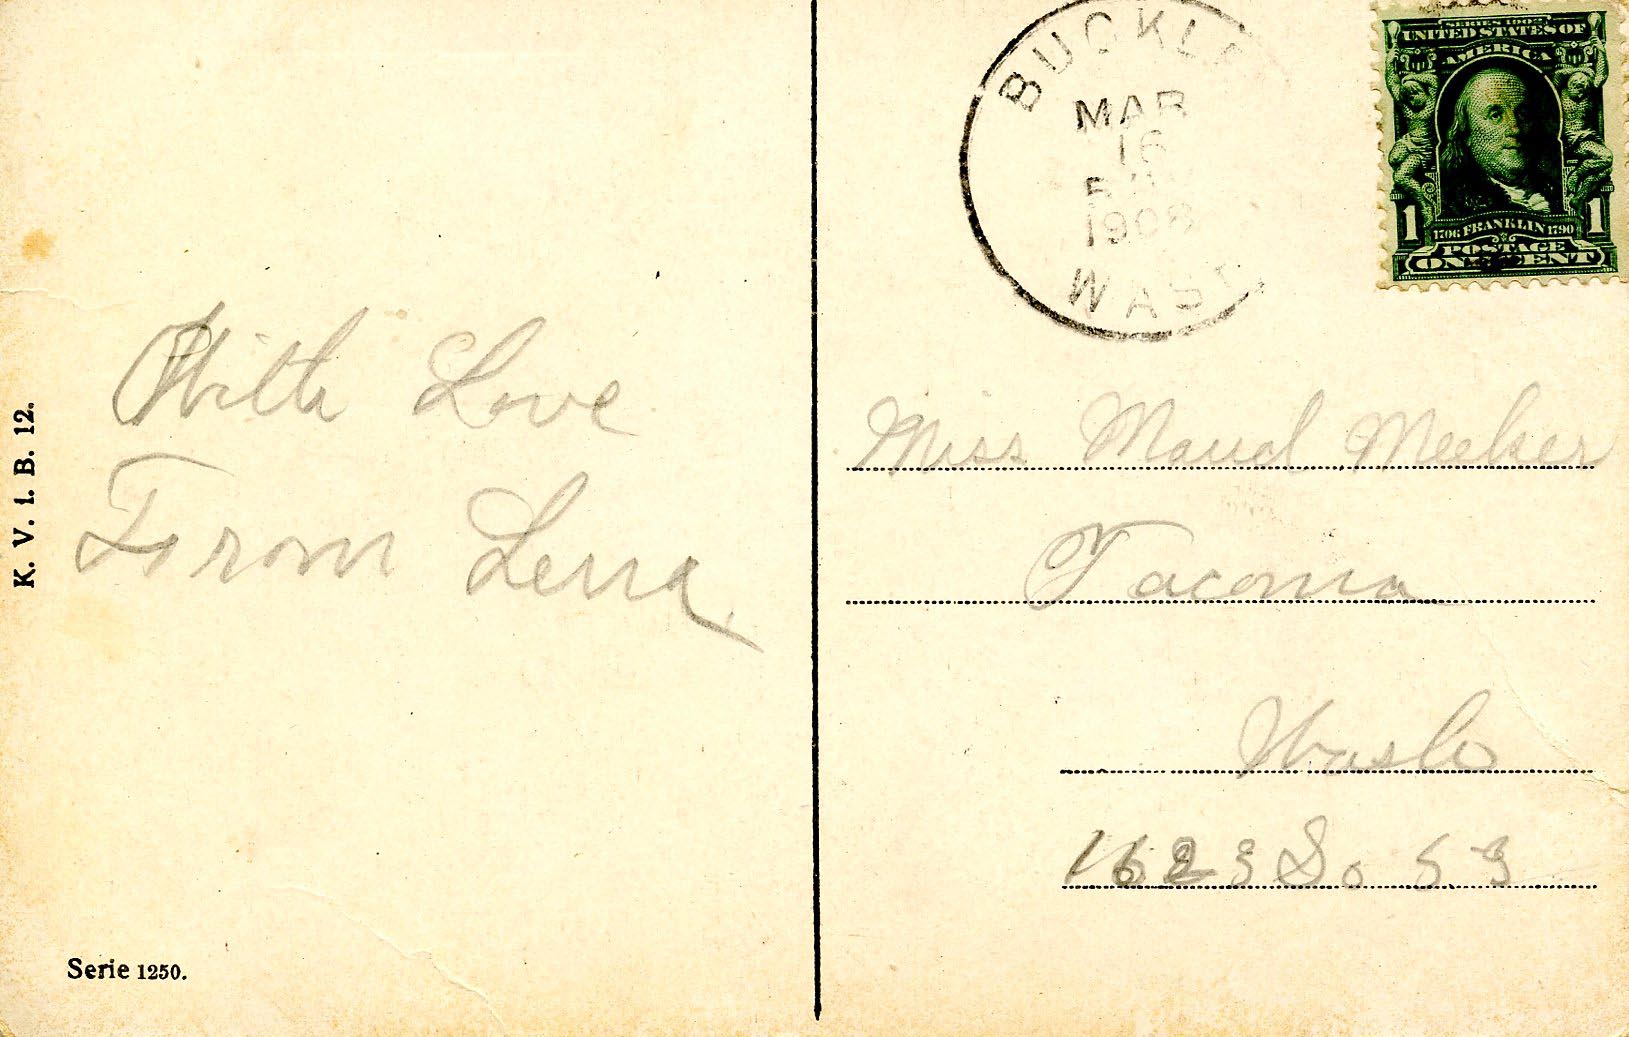 BUCKLE
MAR
16
1908
WASH
SERIES 1902
UNITED STATES OF
AMERICA
1 1
1706 FRANKLIN 1790
POSTAGE
ONE CENT
With Love
From Lena
K. V. i. B. 12.
Serie 1250.
Miss Maud Meeker
Tacoma
Wash
1623 So 53